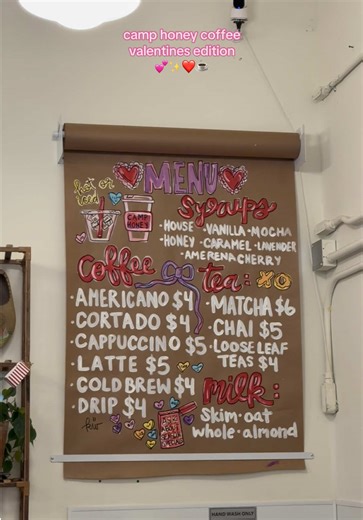 camp honey coffee
valentines edition
💕✨❤️☕
MENU
hot or
iced
CAMP
HONEY
Syrups
·HOUSE ·VANILLA·MOCHA
·HONEY ·CARAMEL ·LAVENDER
·AMERENA CHERRY
Coffee
·AMERICANO $4
·CORTADO $4
·CAPPUCCINO $5
·LATTE $5
·COLD BREW $4
·DRIP $4
tea: XO
·MATCHA $6
·CHAI $5
·LOOSE LEAF
TEAS $4
milk:
skim·oat
whole·almond
HAND WASH ONLY